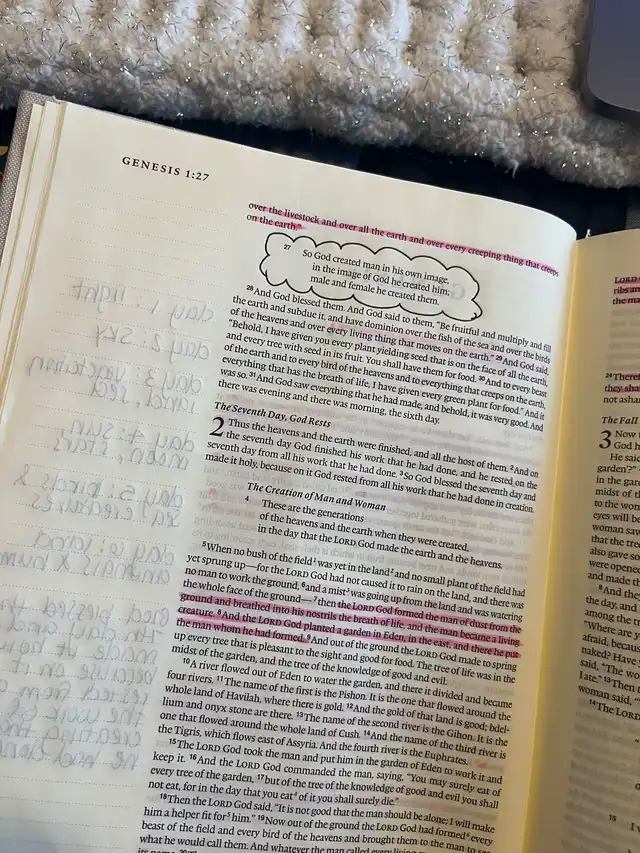 GENESIS 1:27
over the livestock and over all the earth and over every creeping thing that creeps
on the earth."
27 So God created man in his own image,
in the image of God he created him;
male and female he created them.
28 And God blessed them. And God said to them, "Be fruitful and multiply and fill
the earth and subdue it, and have dominion over the fish of the sea and over the birds
of the heavens and over every living thing that moves on the earth." 29 And God said,
"Behold, I have given you every plant yielding seed that is on the face of all the earth,
and every tree with seed in its fruit. You shall have them for food. 30 And to every beast
of the earth and to every bird of the heavens and to everything that creeps on the earth,
everything that has the breath of life, I have given every green plant for food." And it
was so. 31 And God saw everything that he had made, and behold, it was very good. And
there was evening and there was morning, the sixth day.
The Seventh Day, God Rests
2 Thus the heavens and the earth were finished, and all the host of them. 2 And on
the seventh day God finished his work that he had done, and he rested on the
seventh day from all his work that he had done. 3 So God blessed the seventh day and
made it holy, because on it God rested from all his work that he had done in creation.
The Creation of Man and Woman
4 These are the generations
of the heavens and the earth when they were created,
in the day that the LORD God made the earth and the heavens.
5 When no bush of the field¹ was yet in the land² and no small plant of the field had
yet sprung up—for the LORD God had not caused it to rain on the land, and there was
no man to work the ground, 6 and a mist³ was going up from the land and was watering
the whole face of the ground— 7 then the LORD God formed the man of dust from the
ground and breathed into his nostrils the breath of life, and the man became a living
creature. 8 And the LORD God planted a garden in Eden, in the east, and there he put
the man whom he had formed. 9 And out of the ground the LORD God made to spring
up every tree that is pleasant to the sight and good for food. The tree of life was in the
midst of the garden, and the tree of the knowledge of good and evil.
10 A river flowed out of Eden to water the garden, and there it divided and became
four rivers. 11 The name of the first is the Pishon. It is the one that flowed around the
whole land of Havilah, where there is gold. 12 And the gold of that land is good; bdel-
lium and onyx stone are there. 13 The name of the second river is the Gihon. It is the
one that flowed around the whole land of Cush. 14 And the name of the third river is
the Tigris, which flows east of Assyria. And the fourth river is the Euphrates.
15 The LORD God took the man and put him in the garden of Eden to work it and
keep it. 16 And the LORD God commanded the man, saying, "You may surely eat of
every tree of the garden, 17 but of the tree of the knowledge of good and evil you shall
not eat, for in the day that you eat⁴ of it you shall surely die."
18 Then the LORD God said, "It is not good that the man should be alone; I will make
him a helper fit for⁵ him." 19 Now out of the ground the LORD God had formed⁶ every
beast of the field and every bird of the heavens and brought them to the man to see
what he would call them. And whatever the man called every living
day 1: light
day 2: sky
day 3: vegetation
land seed
day 4: sun,
moon, stars
day 5: birds &
sea creatures
LORD
ribs an
the ma
24 Theref
they sha
not asha
The Fall
3 Now
God h
He said
garden'?"
in the gard
midst of t
to the wom
eyes will be
woman saw
that the tre
also gave so
were opened
and made t
8 And they
the day, and
among the tr
"Where are y
afraid, becaus
naked? Have
said, "The wo
I ate." 13 Then
woman said, "
14 The LORD
15